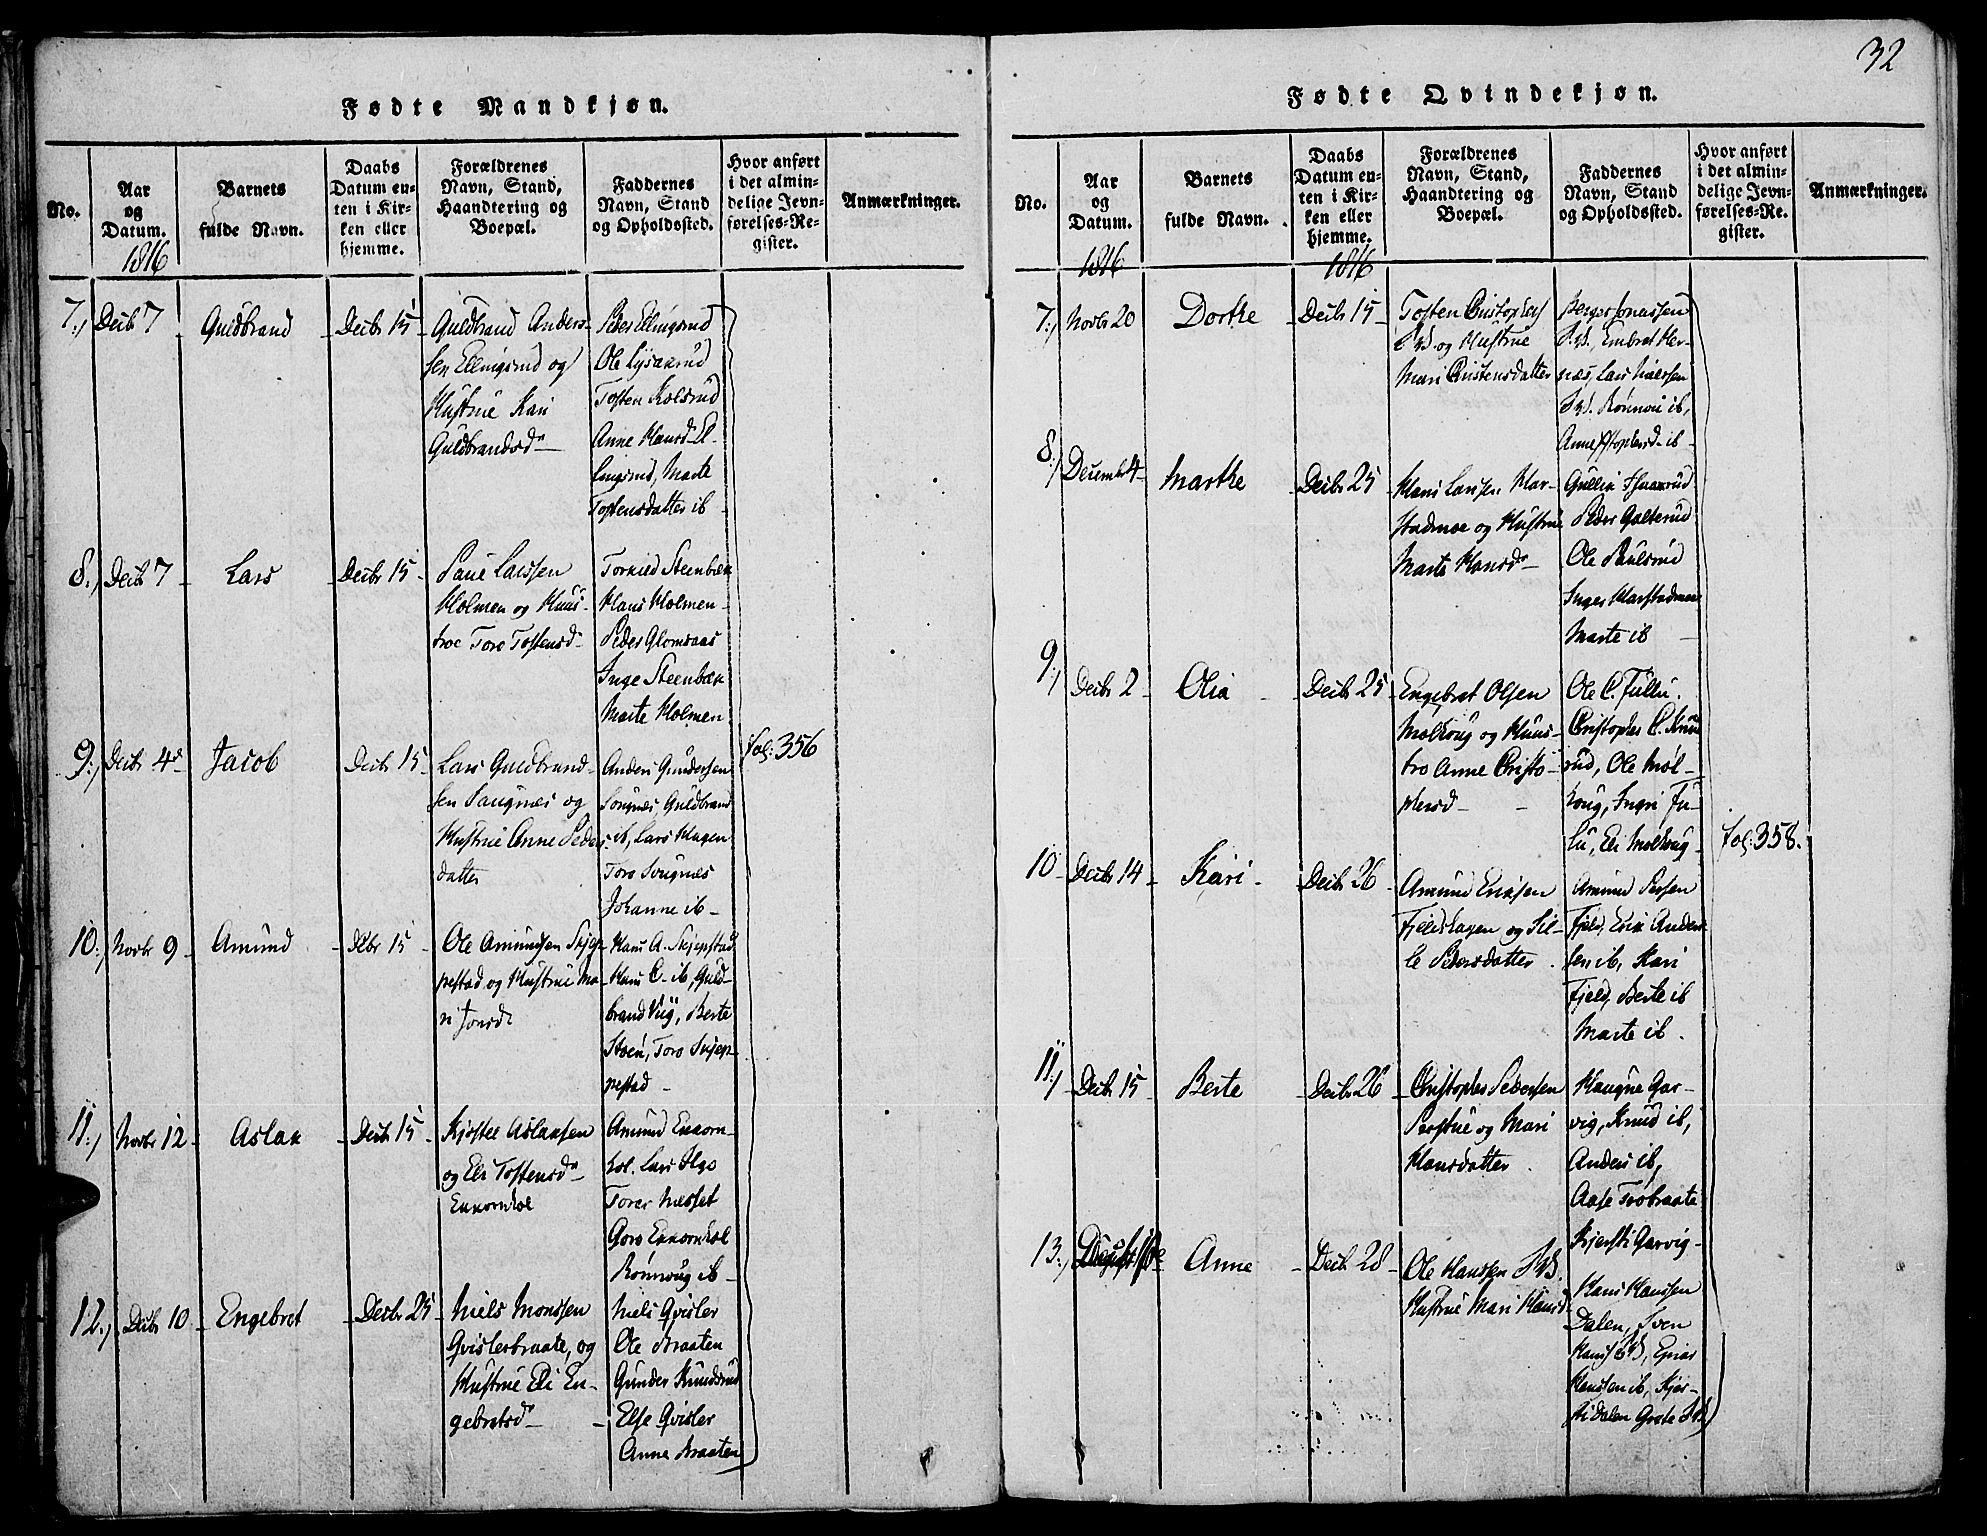 32
Fødte Mandkjøn.
No.
Aar
og
Datum.
1816
Barnets
fulde Navn.
Daabs
Datum en-
ten i Kir-
ken eller
hjemme.
Forældrenes
Navn, Stand,
Haandtering og
Boepæl.
Faddernes
Navn, Stand
og Opholdssted.
Hvor anført
i det almin-
delige Jevn-
førelses-Re-
gister.
Anmærkninger.
7.) Decb 7
Guldbrand
Decbr 15
Guldbrand Anders-
sen Ellingsrud og
Hustrue Kari
Guldbrandsd
Peder Ellingsrud
Ole Lysaarud
Tosten Kolsrud
Anne Hansd El-
lingsrud, Marte
Tostensdatter ib
8.) Decb 7
Lars
Decbr 15
Paul Larssen
Holmen og Hus-
troe Toro Tostensd
Torkild Steenbæk
Hans Holmen
Peder Glomsaas
Inge Steenbæk
Marte Holmen
9.) Decbr 4
Jacob
Decbr 15
Lars Guldbrand-
sen Sougnæs og
Hustrue Anne Peders-
datter
Anders Gundersen
Sougnæs Guldbrand
ib, Lars Hagen
Toro Sougnæs
Johanne ib
fol: 356
10.) Novbr 9
Amund
Debr 15
Ole Amundsen Skjep-
pestad og Hustrue Ma-
ri Jonsd
Hans A. Skjepstad
Hans C. ib, Guld-
brand Viig, Berte
Stoen, Toro Skjep-
pestad
11.) Novbr 12
Aslak
Decbr 15
Kjostel Aslaksen
og Eli Tostensd
Ekkornhol
Amund Ekkorn-
hol. Lars
Torer Næsset
Goro Ekkornhol
Rønnoug ib
12.) Decbr 10
Engebret
Decbr 25
Niels Monssen
Qvislerbraate, og
Hustrue Eli En-
gebretsd
Niels Qvisler
Ole Braaten
Gunder Knudsrud
Else Qvisler
Anne Braaten
Fødte Qvindekjøn.
No.
Aar
og
Datum.
1816
Barnets
fulde Navn.
Daabs
Datum en-
ten i Kir-
ken eller
hjemme.
1816
Forældrenes
Navn, Stand,
Haandtering og
Boepæl.
Faddernes
Navn, Stand
og Opholdssted.
Hvor anført
i det almin-
delige Jevn-
førelses-Re-
gister.
Anmærkninger.
7.) Novbr 20
Dorthe
Decbr 15
Tosten Christophers
og Hustrue
Mari Christensdatter
Jonassen
Embret Her-
næs, Lars Halvssen
Rønnou ib,
Anne ib
8.) Decembr 4
Marthe
Decbr 25
Hans Larssen Har-
stadmoe og Hustrue
Marte Hansd
Gullik
Peder Galterud
Ole Paulsrud
Inger Harstadmoe
Marte ib
9.) Decbr 2
Olia
Decbr 25
Engebret Olsen
Molhoug og Huus-
tro Anne Christo-
phersd
Ole C. Fullu.
Christopher C. Knud
rud, Ole Mol-
houg, Ingri Ful-
lu, Eli Molhoug
10 Decbr 14
Kari
Decbr 26
Amund Eriksen
Fjeldshagen og Sil-
le Pedersdatter
Amund Persen
Fjeld, Erik Anders
sen ib, Kari
Fjeld, Berte ib
Marte ib
fol: 358.
11.) Decbr 15
Berte
Decbr 26
Christopher Pedersen
og Mari
Hansdatter
Haugne Gar-
vig, Knud ib,
Anders ib,
Aase Trobraate
Kjersti Garvig
13.)
Anne
Decbr 28
Ole Hanssen
Hustrue Mari Hansd
Hans Hanssen
Dalen, Sven
Einar
Hanssen ib, Kjer-
sti Dalen Grete